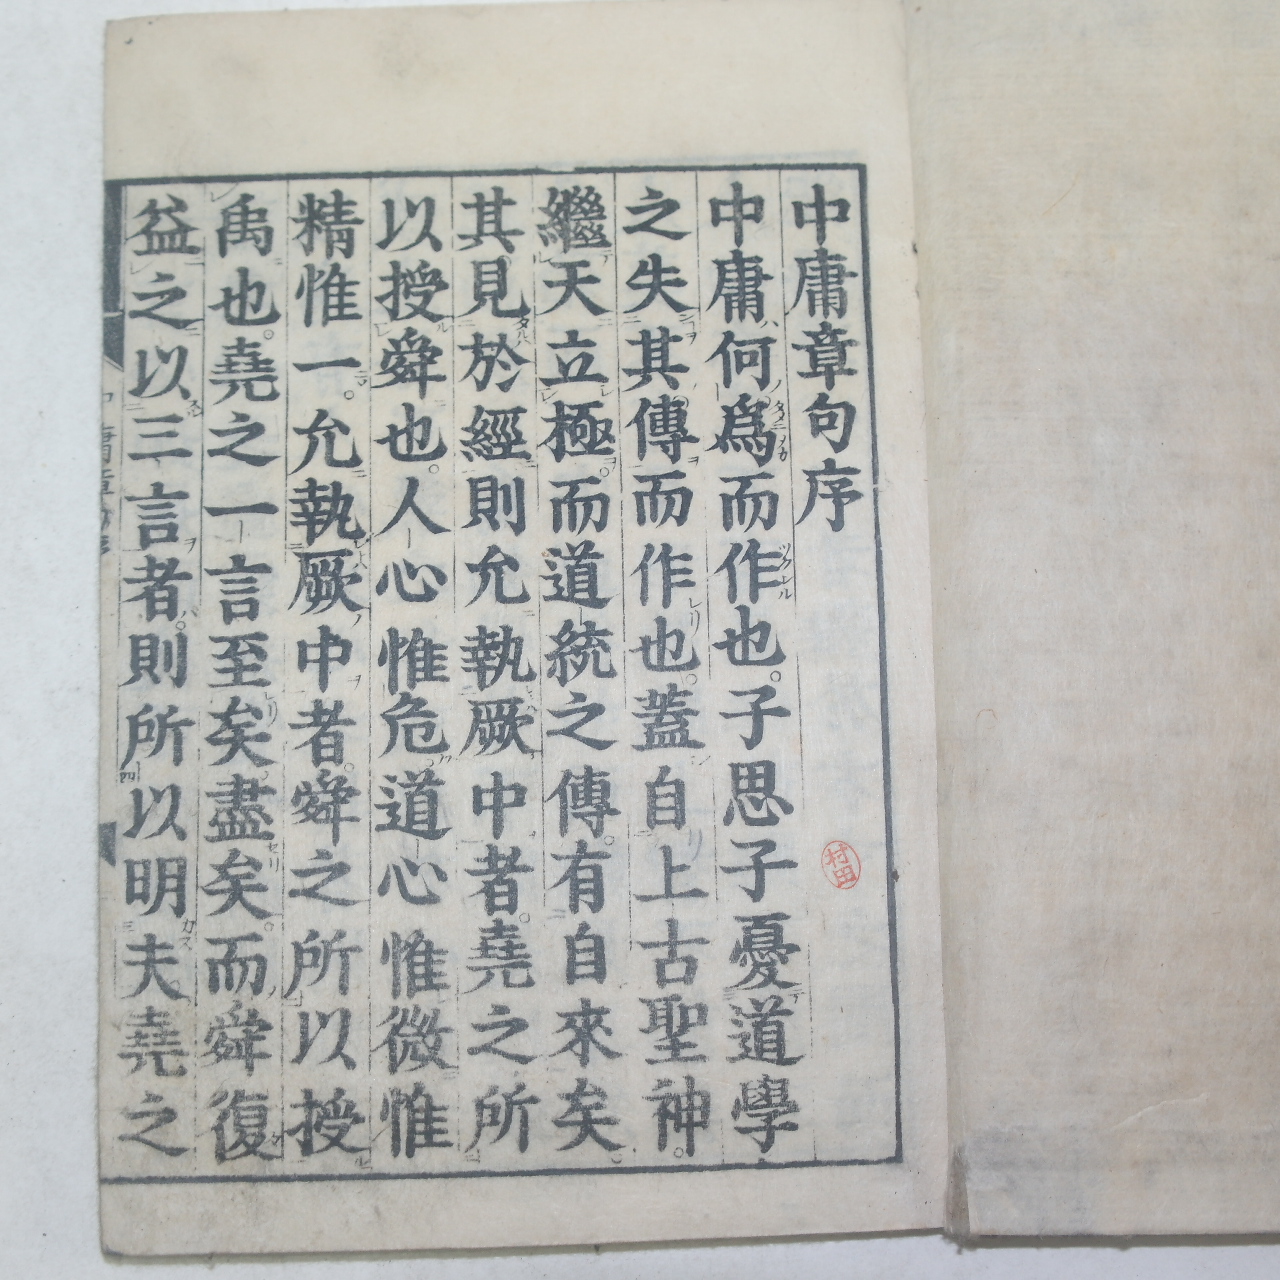 中庸章句序
中庸何爲而作也。子思子憂道學
之失其傳而作也。蓋自上古聖神。
繼天立極。而道統之傳。有自來矣。
其見於經則允執厥中者。堯之所
以授舜也。人心惟危。道心惟微惟
精惟一。允執厥中者。舜之所以授
禹也。堯之一言至矣。盡矣。而舜復
益之以三言者。則所以明夫堯之
村田